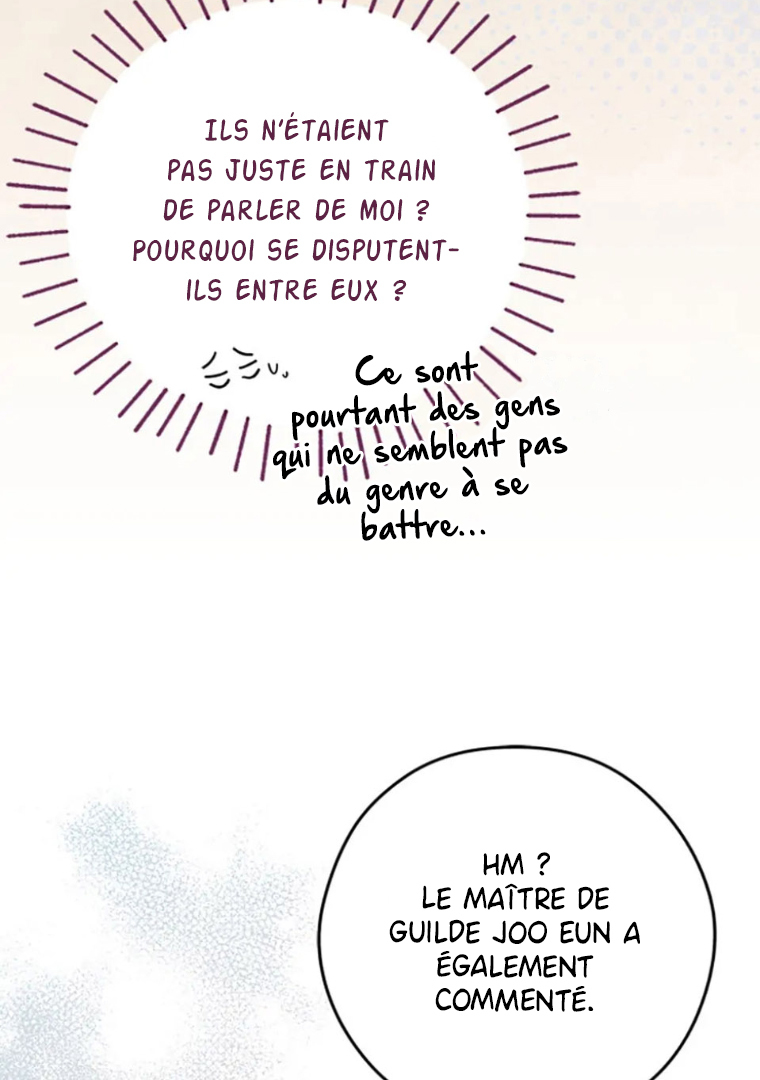 ILS N'ÉTAIENT
PAS JUSTE EN TRAIN
DE PARLER DE MOI ?
POURQUOI SE DISPUTENT-
ILS ENTRE EUX ?
Ce sont
pourtant des gens
qui ne semblent pas
du genre à se
battre...
HM ?
LE MAÎTRE DE
GUILDE JOO EUN A
ÉGALEMENT
COMMENTÉ.